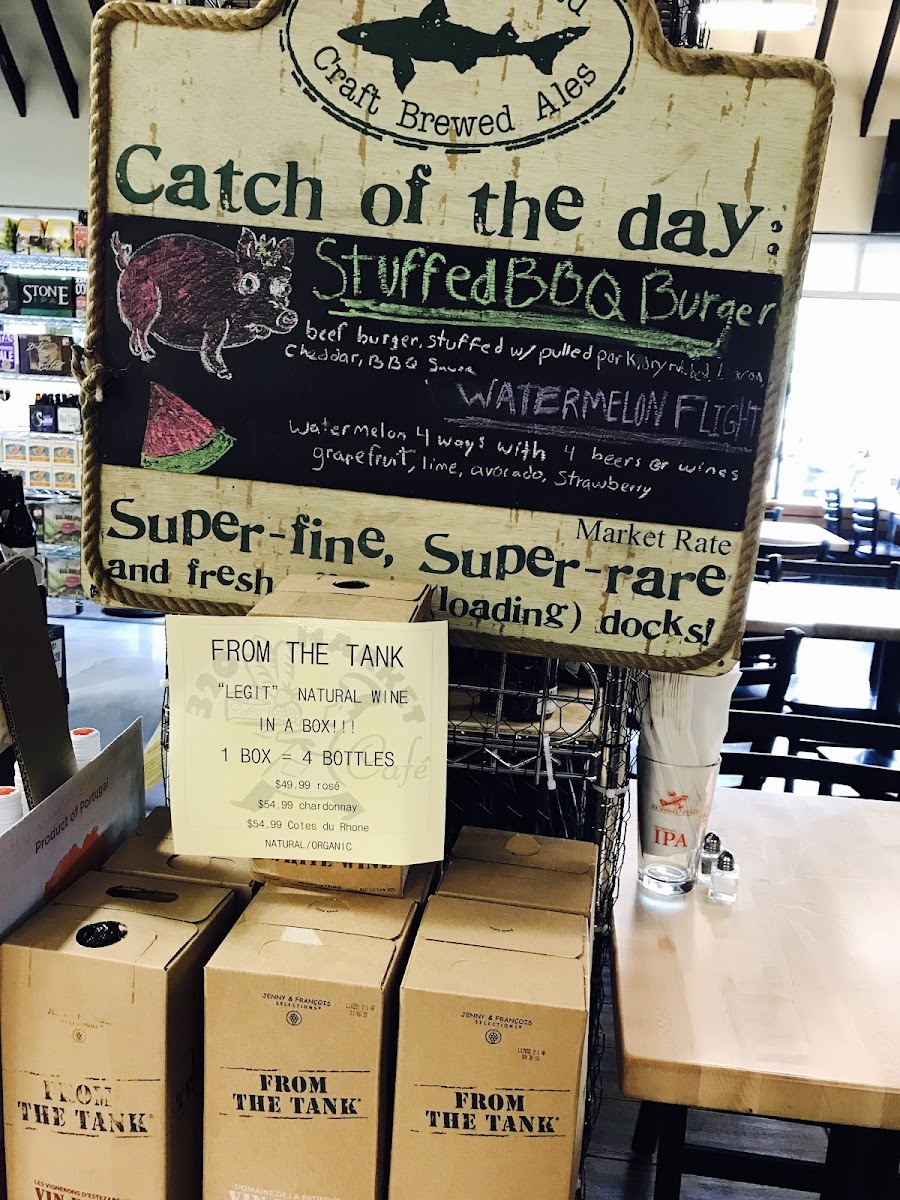 Craft Brewed Ales
Catch of the day:
Stuffed BBQ Burger
beef burger, stuffed w/ pulled pork, dry rubbed,
Cheddar, BBQ Sauce
WATERMELON FLIGHT
Watermelon 4 ways with 4 beers or wines
grapefruit, lime, avocado, Strawberry
Market Rate
Super-fine, Super-rare
and fresh (loading) docks!
FROM THE TANK
“LEGIT” NATURAL WINE
IN A BOX!!!
1 BOX = 4 BOTTLES
$49.99 rosé
$54.99 chardonnay
$54.99 Cotes du Rhone
NATURAL/ORGANIC
Café
WHITE WINE
STONE
IPA
Product of Portugal
IPA
JENNY & FRANÇOIS
SELECTIONS
FROM
THE TANK
LES VIGNERONS D'ESTEZARGUES
JENNY & FRANÇOIS
SELECTIONS
FROM
THE TANK
DOMAINE DE LA PATIENCE
JENNY & FRANÇOIS
SELECTIONS
FROM
THE TANK